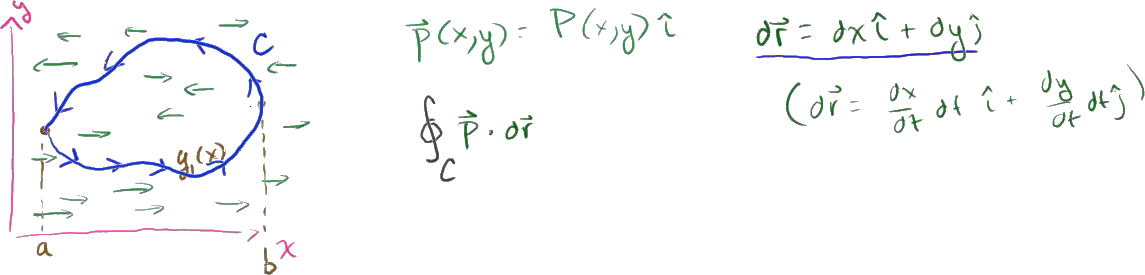 y
C
y₁(x)
a
b
x
p⃗(x,y) = P(x,y) î
∮_C p⃗ · dr⃗
dr⃗ = dx î + dy ĵ
(dr⃗ = dx/dt dt î + dy/dt dt ĵ)